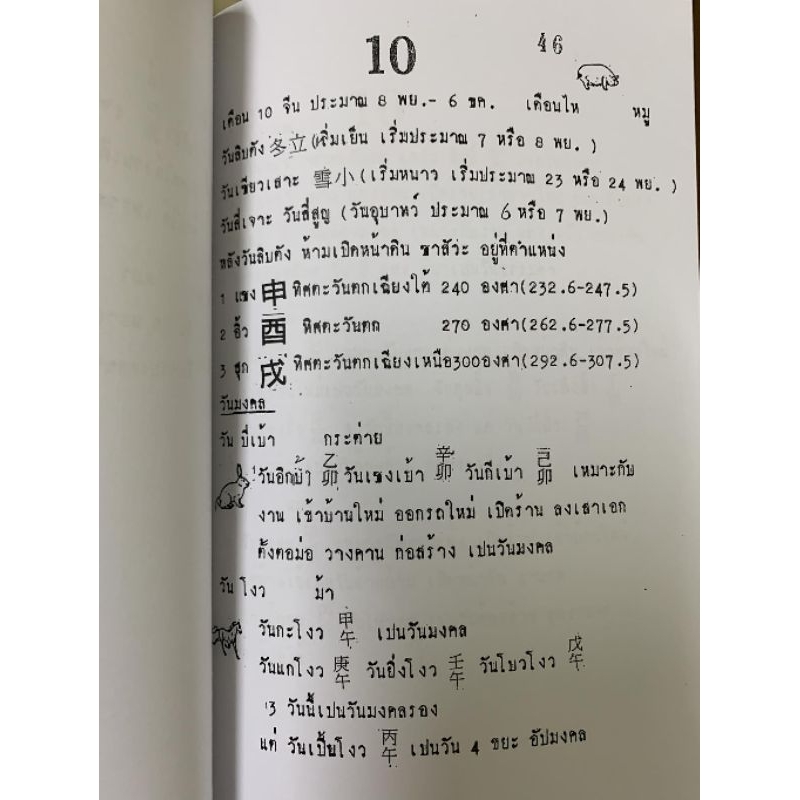 10
46
เดือน 10 จีน ประมาณ 8 พย.- 6 ธค. เดือนไห หมู
วันลิบตัง 冬立 (เริ่มเย็น เริ่มประมาณ 7 หรือ 8 พย. )
วันเซียวเสาะ 雪小 (เริ่มหนาว เริ่มประมาณ 23 หรือ 24 พย. )
วันสี่เจาะ วันสี่สูญ (วันอุบาทว์ ประมาณ 6 หรือ 7 พย.)
หลังวันลิบตัง ห้ามเปิดหน้าดิน ซาสัวะ อยู่ที่ตำแหน่ง
1 แซง 申 ทิศตะวันตกเฉียงใต้ 240 องศา(232.6-247.5)
2 อิ้ว 酉 ทิศตะวันตก 270 องศา(262.6-277.5)
3 สุก 戌 ทิศตะวันตกเฉียงเหนือ300องศา(292.6-307.5)
วันมงคล
วัน บี่เบ้า กระต่าย
วันอิกเบ้า 乙卯 วันเซงเบ้า 辛卯 วันกีเบ้า 己卯 เหมาะกับ
งาน เข้าบ้านใหม่ ออกรถใหม่ เปิดร้าน ลงเสาเอก
ตั้งตอม่อ วางคาน ก่อสร้าง เปนวันมงคล
วัน โงว ม้า
วันกะโงว 甲午 เปนวันมงคล
วันแกโงว 庚午 วันยิ่งโงว 壬午 วันโบวโงว 戊午
3 วันนี้เปนวันมงคลรอง
แต่ วันเปี้ยโงว 丙午 เปนวัน 4 ขยะ อัปมงคล